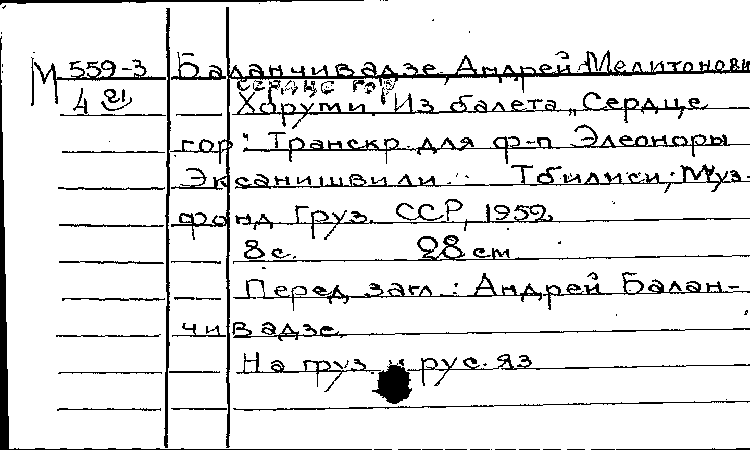 М 559-3 Баланчивадзе, Андрей Мелитонови
сердце гор
4 Хоруми. Из балета „Сердце
гор": Транскр. для ф-п Элеоноры
Эксанишвили. Тбилиси, Муз.
фонд Груз. ССР, 1952.
8 с. 28 cm
Перед загл.: Андрей Балан-
чивадзе.
На груз. и рус. яз